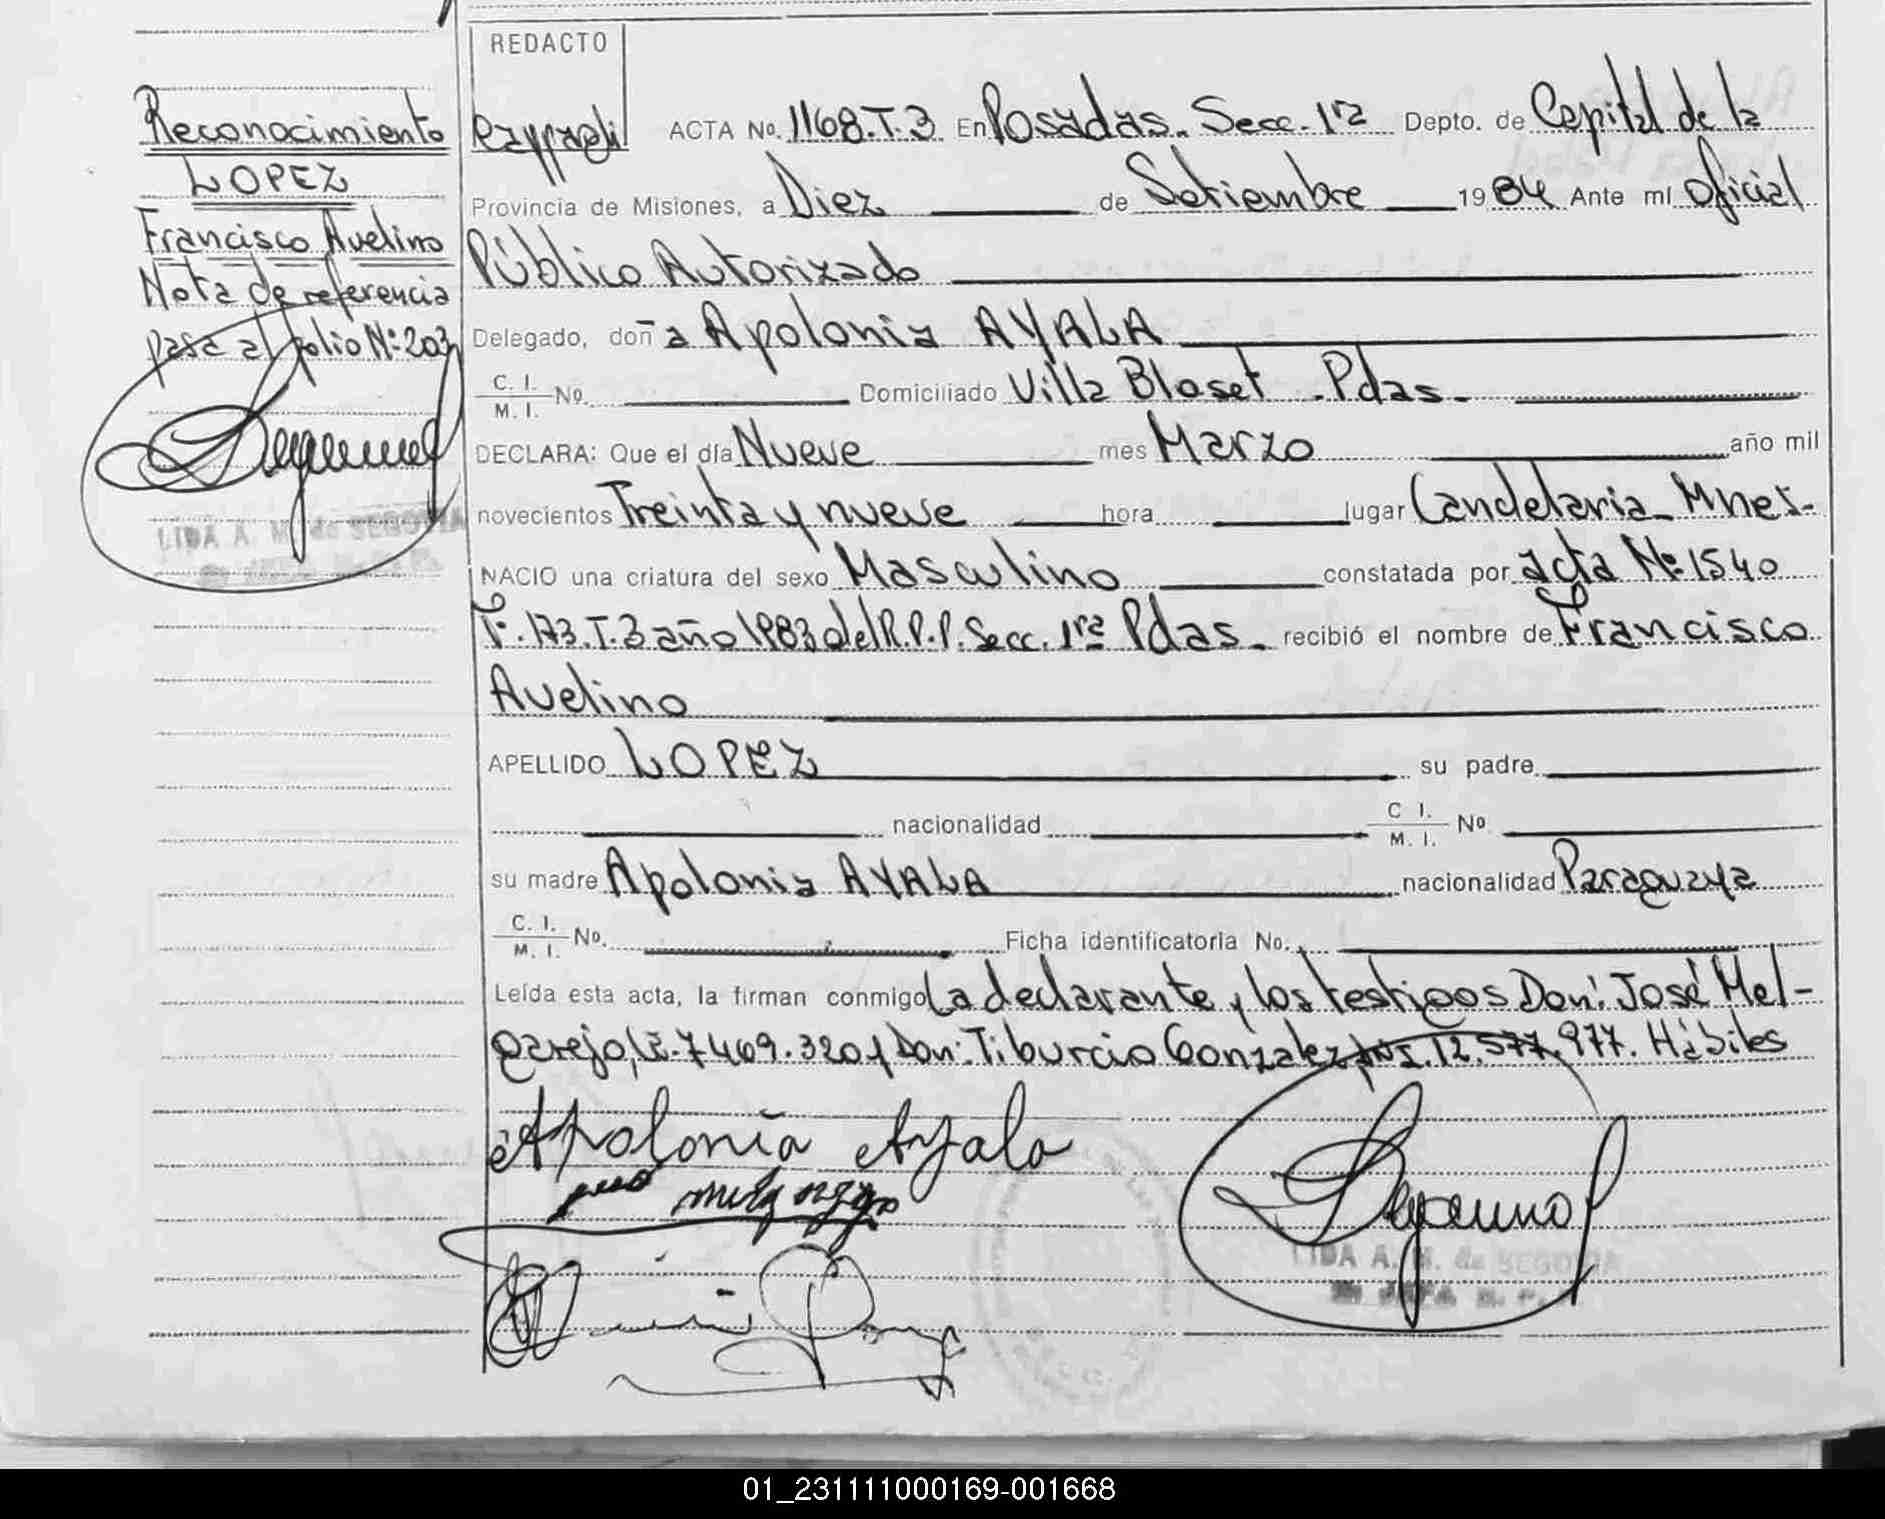 REDACTO
Reconocimiento
LOPEZ
Francisco Avelino
Nota de referencia
pasa al folio Nº 203
LIDA A. M. de SEGOVIA
ACTA No. 1168.T.3 En Posadas. Secc. 1ra Depto. de Capital de la
Provincia de Misiones, a Diez de Setiembre 1984 Ante mi Oficial
Público Autorizado
Delegado, doña Apolonia AYALA
C. I. / M. I. No. Domiciliado Villa Bloset - Pdas.
DECLARA: Que el día Nueve mes Marzo año mil
novecientos Treinta y nueve hora lugar Candelaria - Mnes.
NACIO una criatura del sexo Masculino constatada por acta Nº 1540
Fº. 173. T. 3 año 1983 del R.P.P. Secc. 1ra Pdas. recibió el nombre de Francisco
Avelino
APELLIDO LOPEZ su padre
nacionalidad C I. / M. I. No
su madre Apolonia AYALA nacionalidad Paraguaya
C. I. / M. I. No. Ficha identificatoria No.
Leída esta acta, la firman conmigo La declarante y los testigos Don: José Mel-
garejo, L.E. 7469.320 y Don: Tiburcio Gonzalez DNI. 12.577.977. Hábiles
Apolonia Ayala
LIDA A. M. de SEGOVIA
01_231111000169-001668